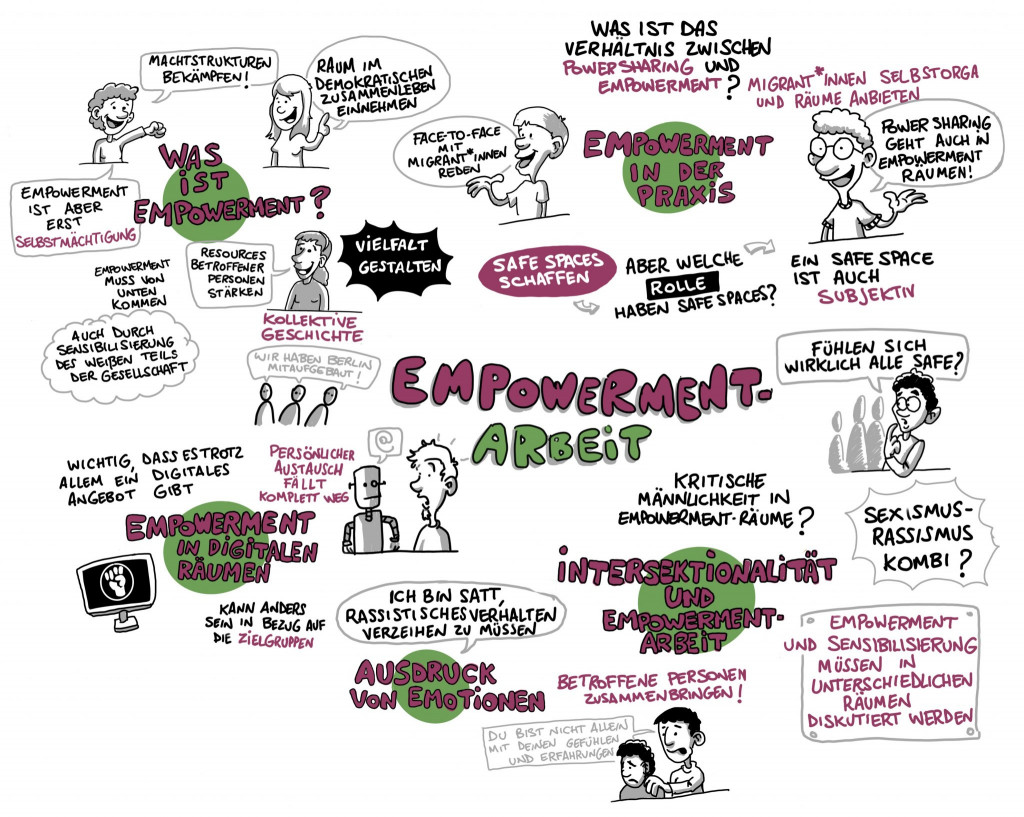 MACHTSTRUKTUREN
BEKÄMPFEN!
RAUM IM
DEMOKRATISCHEN
ZUSAMMENLEBEN
EINNEHMEN
WAS
IST
EMPOWERMENT?
EMPOWERMENT
IST ABER
ERST
SELBSTMÄCHTIGUNG
EMPOWERMENT
MUSS VON
UNTEN
KOMMEN
AUCH DURCH
SENSIBILISIERUNG
DES WEIßEN TEILS
DER GESELLSCHAFT
RESOURCES
BETROFFENER
PERSONEN
STÄRKEN
VIELFALT
GESTALTEN
KOLLEKTIVE
GESCHICHTE
WIR HABEN BERLIN
MITAUFGEBAUT!
WAS IST DAS
VERHÄLTNIS ZWISCHEN
POWERSHARING UND
EMPOWERMENT?
MIGRANT*INNEN SELBSTORGA
UND RÄUME ANBIETEN
FACE-TO-FACE
MIT
MIGRANT*INNEN
REDEN
EMPOWERMENT
IN DER
PRAXIS
POWER SHARING
GEHT AUCH IN
EMPOWERMENT
RÄUMEN!
SAFE SPACES
SCHAFFEN
ABER WELCHE
ROLLE
HABEN SAFE SPACES?
EIN SAFE SPACE
IST AUCH
SUBJEKTIV
FÜHLEN SICH
WIRKLICH ALLE SAFE?
EMPOWERMENT-
ARBEIT
WICHTIG, DASS ES TROTZ
ALLEM EIN DIGITALES
ANGEBOT GIBT
PERSÖNLICHER
AUSTAUSCH
FÄLLT
KOMPLETT WEG
@
EMPOWERMENT
IN DIGITALEN
RÄUMEN
KANN ANDERS
SEIN IN BEZUG AUF
DIE ZIELGRUPPEN
ICH BIN SATT,
RASSISTISCHES VERHALTEN
VERZEIHEN ZU MÜSSEN
AUSDRUCK
VON EMOTIONEN
KRITISCHE
MÄNNLICHKEIT IN
EMPOWERMENT-RÄUME?
SEXISMUS-
RASSISMUS
KOMBI?
INTERSEKTIONALITÄT
UND
EMPOWERMENT-
ARBEIT
BETROFFENE PERSONEN
ZUSAMMENBRINGEN!
DU BIST NICHT ALLEIN
MIT DEINEN GEFÜHLEN
UND ERFAHRUNGEN
EMPOWERMENT
UND SENSIBILISIERUNG
MÜSSEN IN
UNTERSCHIEDLICHEN
RÄUMEN
DISKUTIERT WERDEN